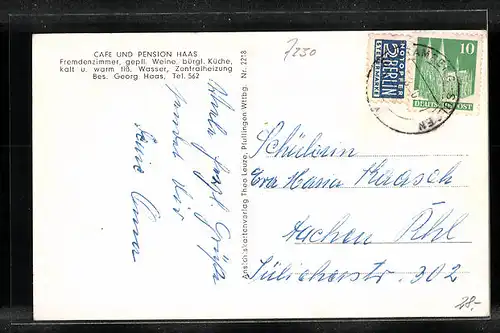 CAFE UND PENSION HAAS
Fremdenzimmer, gepfl. Weine, bürgl. Küche,
kalt u. warm fliß. Wasser, Zentralheizung
Bes. Georg Haas, Tel. 562
7230
NOTOPFER
2 BERLIN
STEUERMARKE
10
DEUTSCHE POST
Ansichtskartenverlag Theo Leuze, Pfullingen Wttbg. Nr. 2218
Grüße
sendet dir
Schülerin
Eva Maria Kaasch
Aachen Rhl
Jülicherstr. 302
28,-